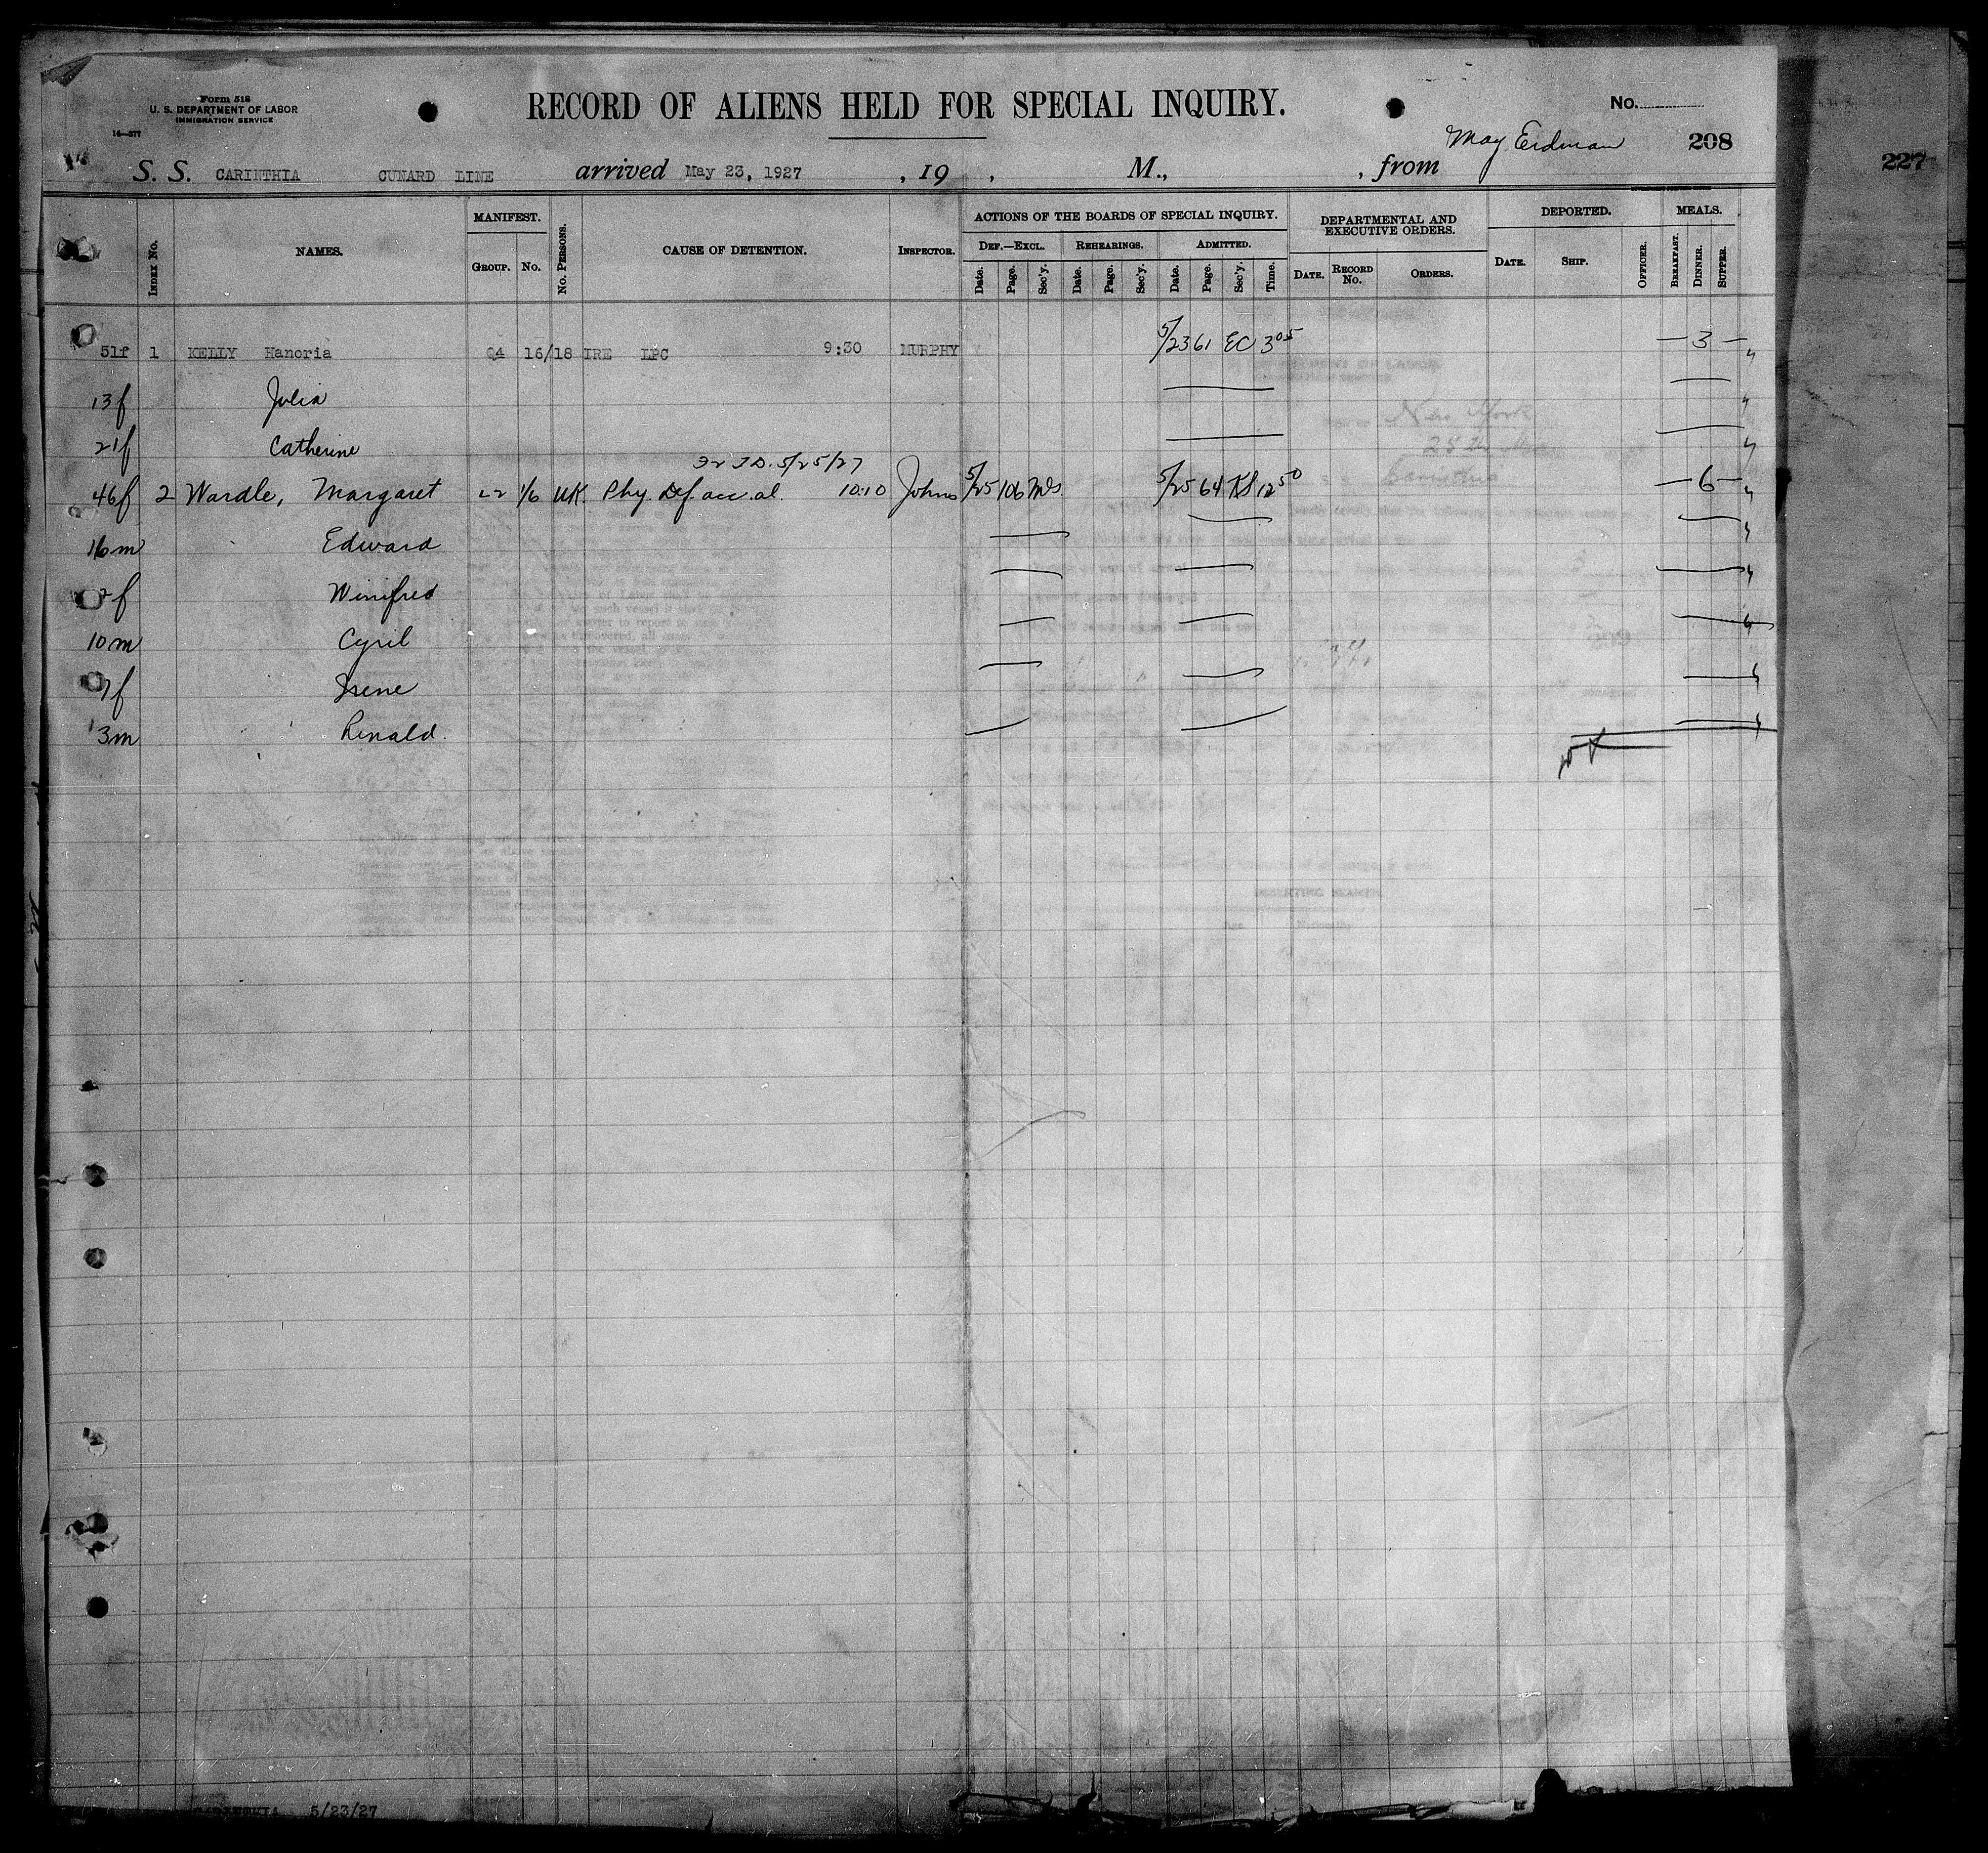 Form 518
U. S. DEPARTMENT OF LABOR
IMMIGRATION SERVICE
14—377
RECORD OF ALIENS HELD FOR SPECIAL INQUIRY.
No.
May Eidman
208
227
S. S. CARINTHIA CUNARD LINE arrived May 23, 1927 , 19 , M., , from
INDEX No. NAMES. MANIFEST. GROUP. No. No. PERSONS. CAUSE OF DETENTION. INSPECTOR. ACTIONS OF THE BOARDS OF SPECIAL INQUIRY. DEF.—EXCL. Date. Page. Sec'y. REHEARINGS. Date. Page. Sec'y. ADMITTED. Date. Page. Sec'y. Time. DEPARTMENTAL AND EXECUTIVE ORDERS. DATE. RECORD No. ORDERS. DEPORTED. DATE. SHIP. OFFICER. MEALS. BREAKFAST. DINNER. SUPPER.
51f 1 KELLY Hanoria 04 16/18 IRE LPC 9:30 MURPHY 5/23 61 EC 3 05 — 3 — "
13f Julia "
21f Catherine "
5/25/27
46f 2 Wardle, Margaret 22 1/6 UK. Phy. Def. acc. al. 10:10 Johns 5/25 106 Mds. 5/25 64 KS 12 50 — 6 — "
16m Edward "
2f Winifred "
10m Cyril
7f Irene
3m Renald.
5/23/27